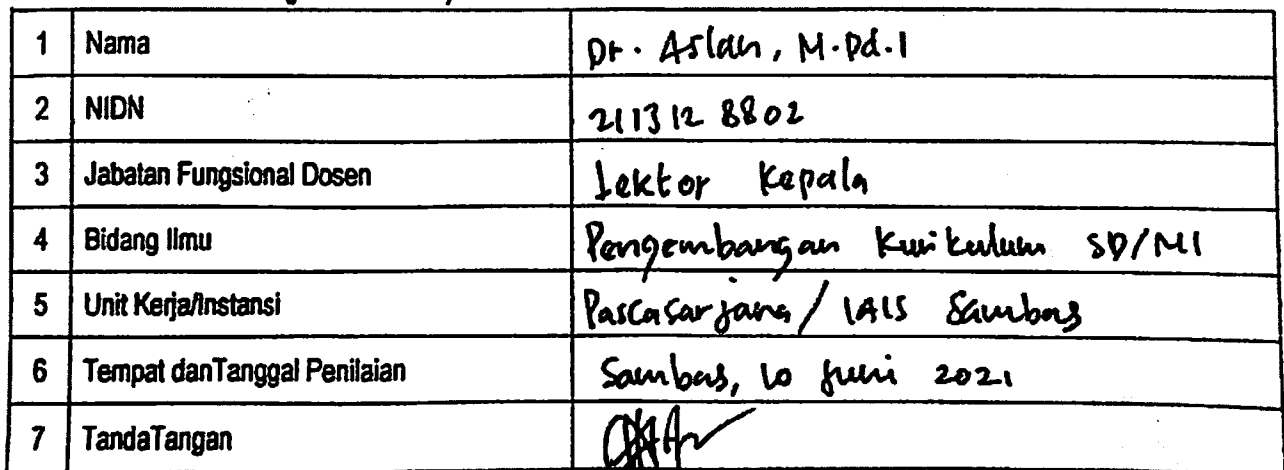 1 Nama Dr. Aslan, M.Pd.I
2 NIDN 2113128802
3 Jabatan Fungsional Dosen Lektor Kepala
4 Bidang Ilmu Pengembangan Kurikulum SD/MI
5 Unit Kerja/Instansi Pascasarjana/IAIS Sambas
6 Tempat danTanggal Penilaian Sambas, 10 Juni 2021
7 TandaTangan